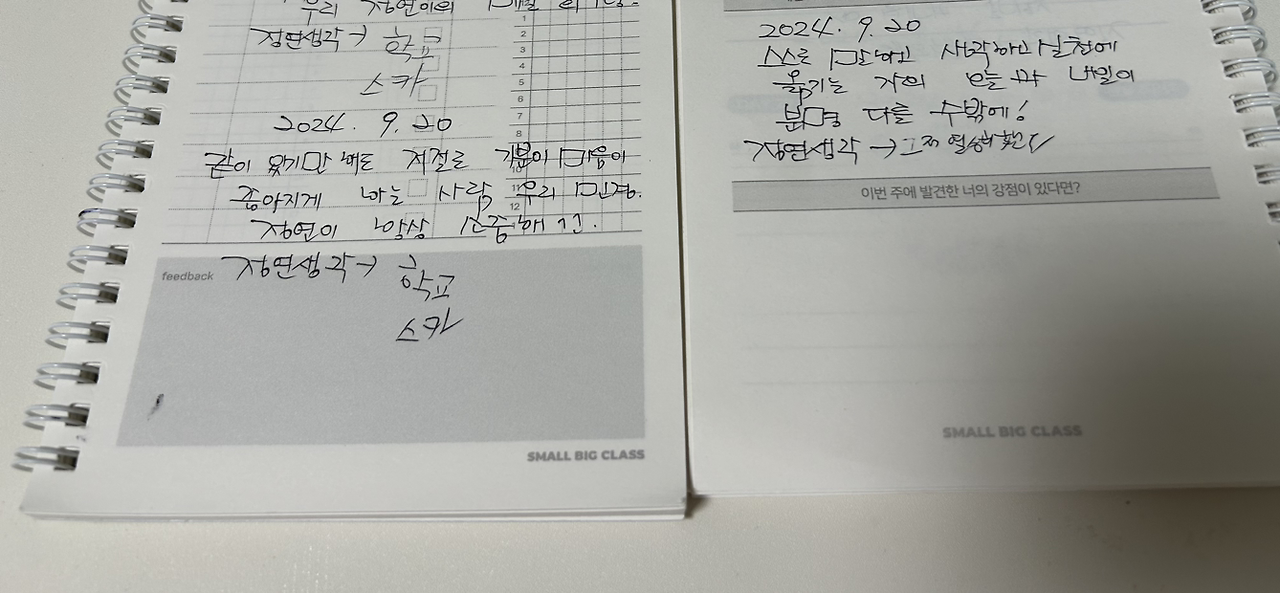 우리 정연이의
정연생각→ 학교
스카
2024. 9. 20
같이 있기만 해도 저절로 기분이 마음이
좋아지게 하는 사람 우리
정연이 항상 소중해
1
2
3
4
5
6
7
8
10
11
12
feedback
정연생각→ 학교
스카
2
SMALL BIG CLASS
2024. 9. 20
스스로 판단하고 생각하고 실천에
옮기는 자의 오늘과 내일이
분명 다를 수밖에!
정연생각→ 그저 열심히
이번 주에 발견한 너의 강점이 있다면?
SMALL BIG CLASS